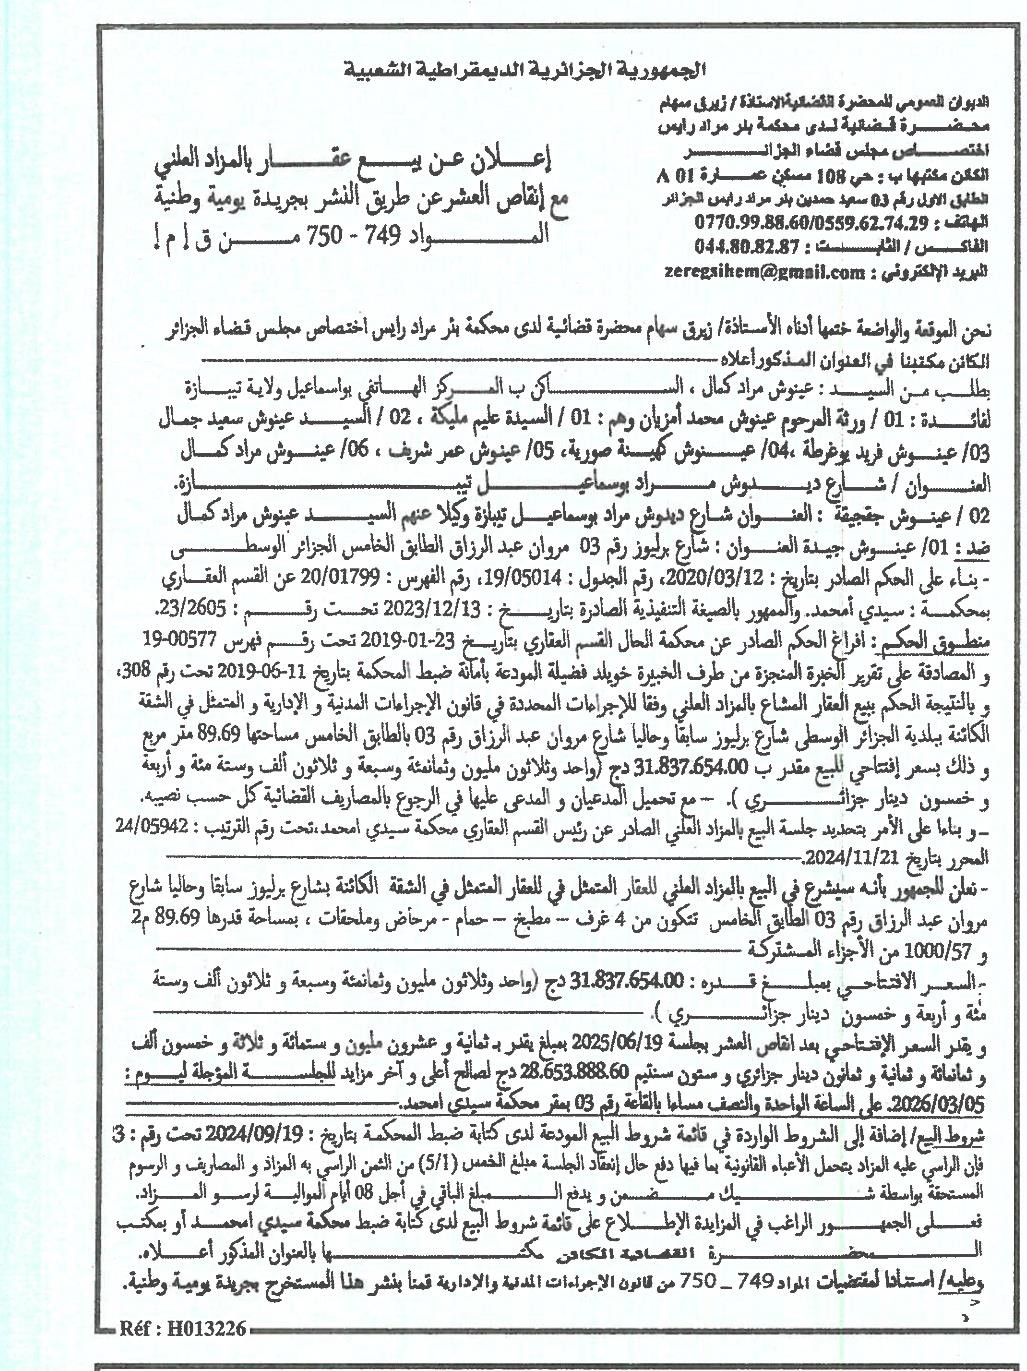 الجمهورية الجزائرية الديمقراطية الشعبية
الديوان العمومي للمحضرة القضائية الاستاذة / زيرق سهام
محضرة قضائية لدى محكمة بئر مراد رايس
اختصاص مجلس قضاء الجزائر
الكائن مكتبها ب : حي 108 مسكن عمارة A 01
الطابق الاول رقم 03 سعيد حمدين بئر مراد رايس الجزائر
الهاتف : 0770.99.88.60/0559.62.74.29
الفاكس / الثابت : 044.80.82.87
البريد الإلكتروني : zeregsihem@gmail.com
إعلان عن بيع عقار بالمزاد العلني
مع إنقاص العشر عن طريق النشر بجريدة يومية وطنية
المواد 749 - 750 من ق إ م إ
نحن الموقعة والواضعة ختمها أدناه الأستاذة/ زيرق سهام محضرة قضائية لدى محكمة بئر مراد رايس اختصاص مجلس قضاء الجزائر
الكائن مكتبنا في العنوان المذكور أعلاه
بطلب من السيد : عينوش مراد كمال ، الساكن ب المركز الهاتفي بواسماعيل ولاية تيبازة
لفائدة : 01 / ورثة المرحوم عينوش محمد أمزيان وهم : 01 / السيدة عليم مليكة ، 02 / السيد عينوش سعيد جمال
03/ عينوش فريد يوغرطة ،04/ عينوش كهينة صورية، 05/ عينوش عمر شريف ، 06/ عينوش مراد كمال
العنوان / شارع ديدوش مراد بوسماعيل تيبازة.
02 / عينوش جقجيقة : العنوان شارع ديدوش مراد بوسماعيل تيبازة وكيلا عنهم السيد عينوش مراد كمال
ضد : 01/ عينوش جيدة العنوان : شارع برليوز رقم 03 مروان عبد الرزاق الطابق الخامس الجزائر الوسطى
- بناء على الحكم الصادر بتاريخ : 2020/03/12، رقم الجدول : 19/05014، رقم الفهرس : 20/01799 عن القسم العقاري
بمحكمة : سيدي أمحمد. والممهور بالصيغة التنفيذية الصادرة بتاريخ : 2023/12/13 تحت رقم : 23/2605.
منطوق الحكم : افراغ الحكم الصادر عن محكمة الحال القسم العقاري بتاريخ 23-01-2019 تحت رقم فهرس 00577-19
و المصادقة على تقرير الخبرة المنجزة من طرف الخبيرة خويلد فضيلة المودعة بأمانة ضبط المحكمة بتاريخ 11-06-2019 تحت رقم 308،
و بالنتيجة الحكم ببيع العقار المشاع بالمزاد العلني وفقا للإجراءات المحددة في قانون الإجراءات المدنية و الإدارية و المتمثل في الشقة
الكائنة ببلدية الجزائر الوسطى شارع برليوز سابقا وحاليا شارع مروان عبد الرزاق رقم 03 بالطابق الخامس مساحتها 89.69 متر مربع
و ذلك بسعر إفتتاحي للبيع مقدر ب 31.837.654.00 دج (واحد وثلاثون مليون وثمانمئة وسبعة و ثلاثون ألف وستة مئة و أربعة
و خمسون دينار جزائري ). – مع تحميل المدعيان و المدعى عليها في الرجوع بالمصاريف القضائية كل حسب نصيبه.
ـ و بناءا على الأمر بتحديد جلسة البيع بالمزاد العلني الصادر عن رئيس القسم العقاري محكمة سيدي امحمد،تحت رقم الترتيب : 24/05942
المحرر بتاريخ 2024/11/21.
- نعلن للجمهور بأنه سيشرع في البيع بالمزاد العلني للعقار المتمثل في للعقار المتمثل في الشقة الكائنة بشارع برليوز سابقا وحاليا شارع
مروان عبد الرزاق رقم 03 الطابق الخامس تتكون من 4 غرف – مطبخ – حمام - مرحاض وملحقات ، بمساحة قدرها 89.69 م2
و 1000/57 من الأجزاء المشتركة
-السعر الافتتاحي بمبلغ قدره : 31.837.654.00 دج (واحد وثلاثون مليون وثمانمئة وسبعة و ثلاثون ألف وستة
مئة و أربعة و خمسون دينار جزائري ).
و يقدر السعر الإفتتاحي بعد انقاص العشر بجلسة 2025/06/19 بمبلغ يقدر بـ ثمانية و عشرون مليون و ستمائة و ثلاثة و خمسون ألف
و ثمانمائة و ثمانية و ثمانون دينار جزائري و ستون سنتيم 28.653.888.60 دج لصالح أعلى و آخر مزايد للجلسة المؤجلة ليوم :
2026/03/05. على الساعة الواحدة والنصف مساءا بالقاعة رقم 03 بمقر محكمة سيدي امحمد.
شروط البيع/ إضافة إلى الشروط الواردة في قائمة شروط البيع المودعة لدى كتابة ضبط المحكمة بتاريخ : 2024/09/19 تحت رقم : 3
فإن الراسي عليه المزاد يتحمل الأعباء القانونية بما فيها دفع حال إنعقاد الجلسة مبلغ الخمس (5/1) من الثمن الراسي به المزاد و المصاريف و الرسوم
المستحقة بواسطة شيك مضمن و يدفع المبلغ الباقي في أجل 08 أيام الموالية لرسو المزاد.
فعلى الجمهور الراغب في المزايدة الإطلاع على قائمة شروط البيع لدى كتابة ضبط محكمة سيدي امحمد أو بمكتب
المحضرة القضائية الكائن مكتبها بالعنوان المذكور أعلاه.
وعليه/ استنادا لمقتضيات المواد 749 ـ 750 من قانون الإجراءات المدنية والإدارية قمنا بنشر هذا المستخرج بجريدة يومية وطنية.
Réf : H013226